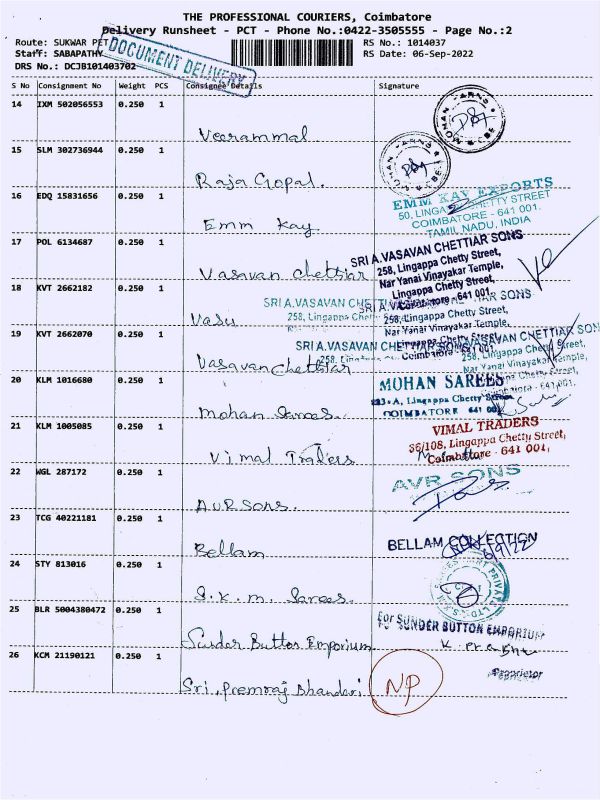 THE PROFESSIONAL COURIERS, Coimbatore
Delivery Runsheet - PCT - Phone No.:0422-3505555 - Page No.:2
Route: SUKWAR PET
RS No.: 1014037
Staff: SABAPATHY
RS Date: 06-Sep-2022
DRS No.: DCJB101403702
DOCUMENT DELIVERY
S No Consignment No Weight PCS Consignee Details Signature
14 IXM 502056553 0.250 1
Veerammal
15 SLM 302736944 0.250 1
Raja Gopal.
16 EDQ 15831656 0.250 1
EMM KAY EXPORTS
50, LINGAPPA CHETTY STREET
COIMBATORE - 641 001.
TAMIL NADU, INDIA
Emm Kay
17 POL 6134687 0.250 1
SRI A.VASAVAN CHETTIAR SONS
258, Lingappa Chetty Street,
Nar Yanai Vinayakar Temple,
Coimbatore - 641 001.
Vasavan Chettiar
18 KVT 2662182 0.250 1
SRI A.VASAVAN CHETTIAR SONS
258, Lingappa Chetty Street,
Nar Yanai Vinayakar Temple,
Vasu
19 KVT 2662070 0.250 1
SRI A.VASAVAN CHETTIAR SONS
258, Lingappa Chetty Street,
Nar Yanai Vinayakar Temple,
Coimbatore - 641 001.
Vasavan Chettiar
20 KLM 1016680 0.250 1
MOHAN SAREES
223-A, Lingappa Chetty Street
COIMBATORE - 641 001
Mohan Sarees.
21 KLM 1005085 0.250 1
VIMAL TRADERS
36/108, Lingappa Chetty Street,
Coimbatore - 641 001,
Vimal Traders
22 WGL 287172 0.250 1
AVR SONS
AVR Sons.
23 TCG 40221181 0.250 1
BELLAM COLLECTION
Bellam
24 STY 813016 0.250 1
S.K.M. Sarees.
25 BLR 5004380472 0.250 1
For SUNDER BUTTON EMPORIUM
Sunder Button Emporium
Proprietor
26 KCM 21190121 0.250 1
Sri. Premraj Bhandari
NP